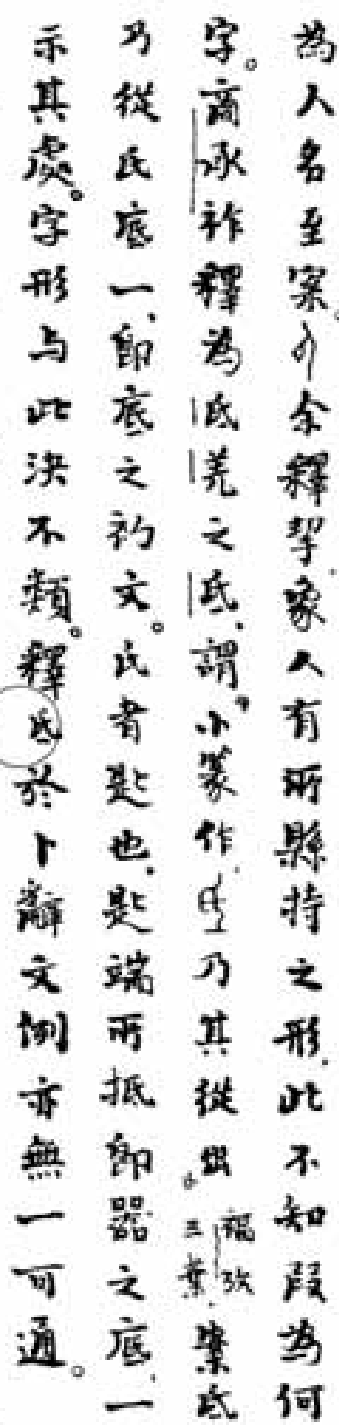 為人名至案。余釋挈、象人有所縣持之形、此不知段為何
字。商承祚釋為氐羌之氐、謂小篆作乃其從出。福攷三葉。案氐
乃從氏底一、即底之初文。氏者匙也、匙端所抵即器之底、一
示其處。字形与此決不類。釋氐於卜辭文例亦無一可通。